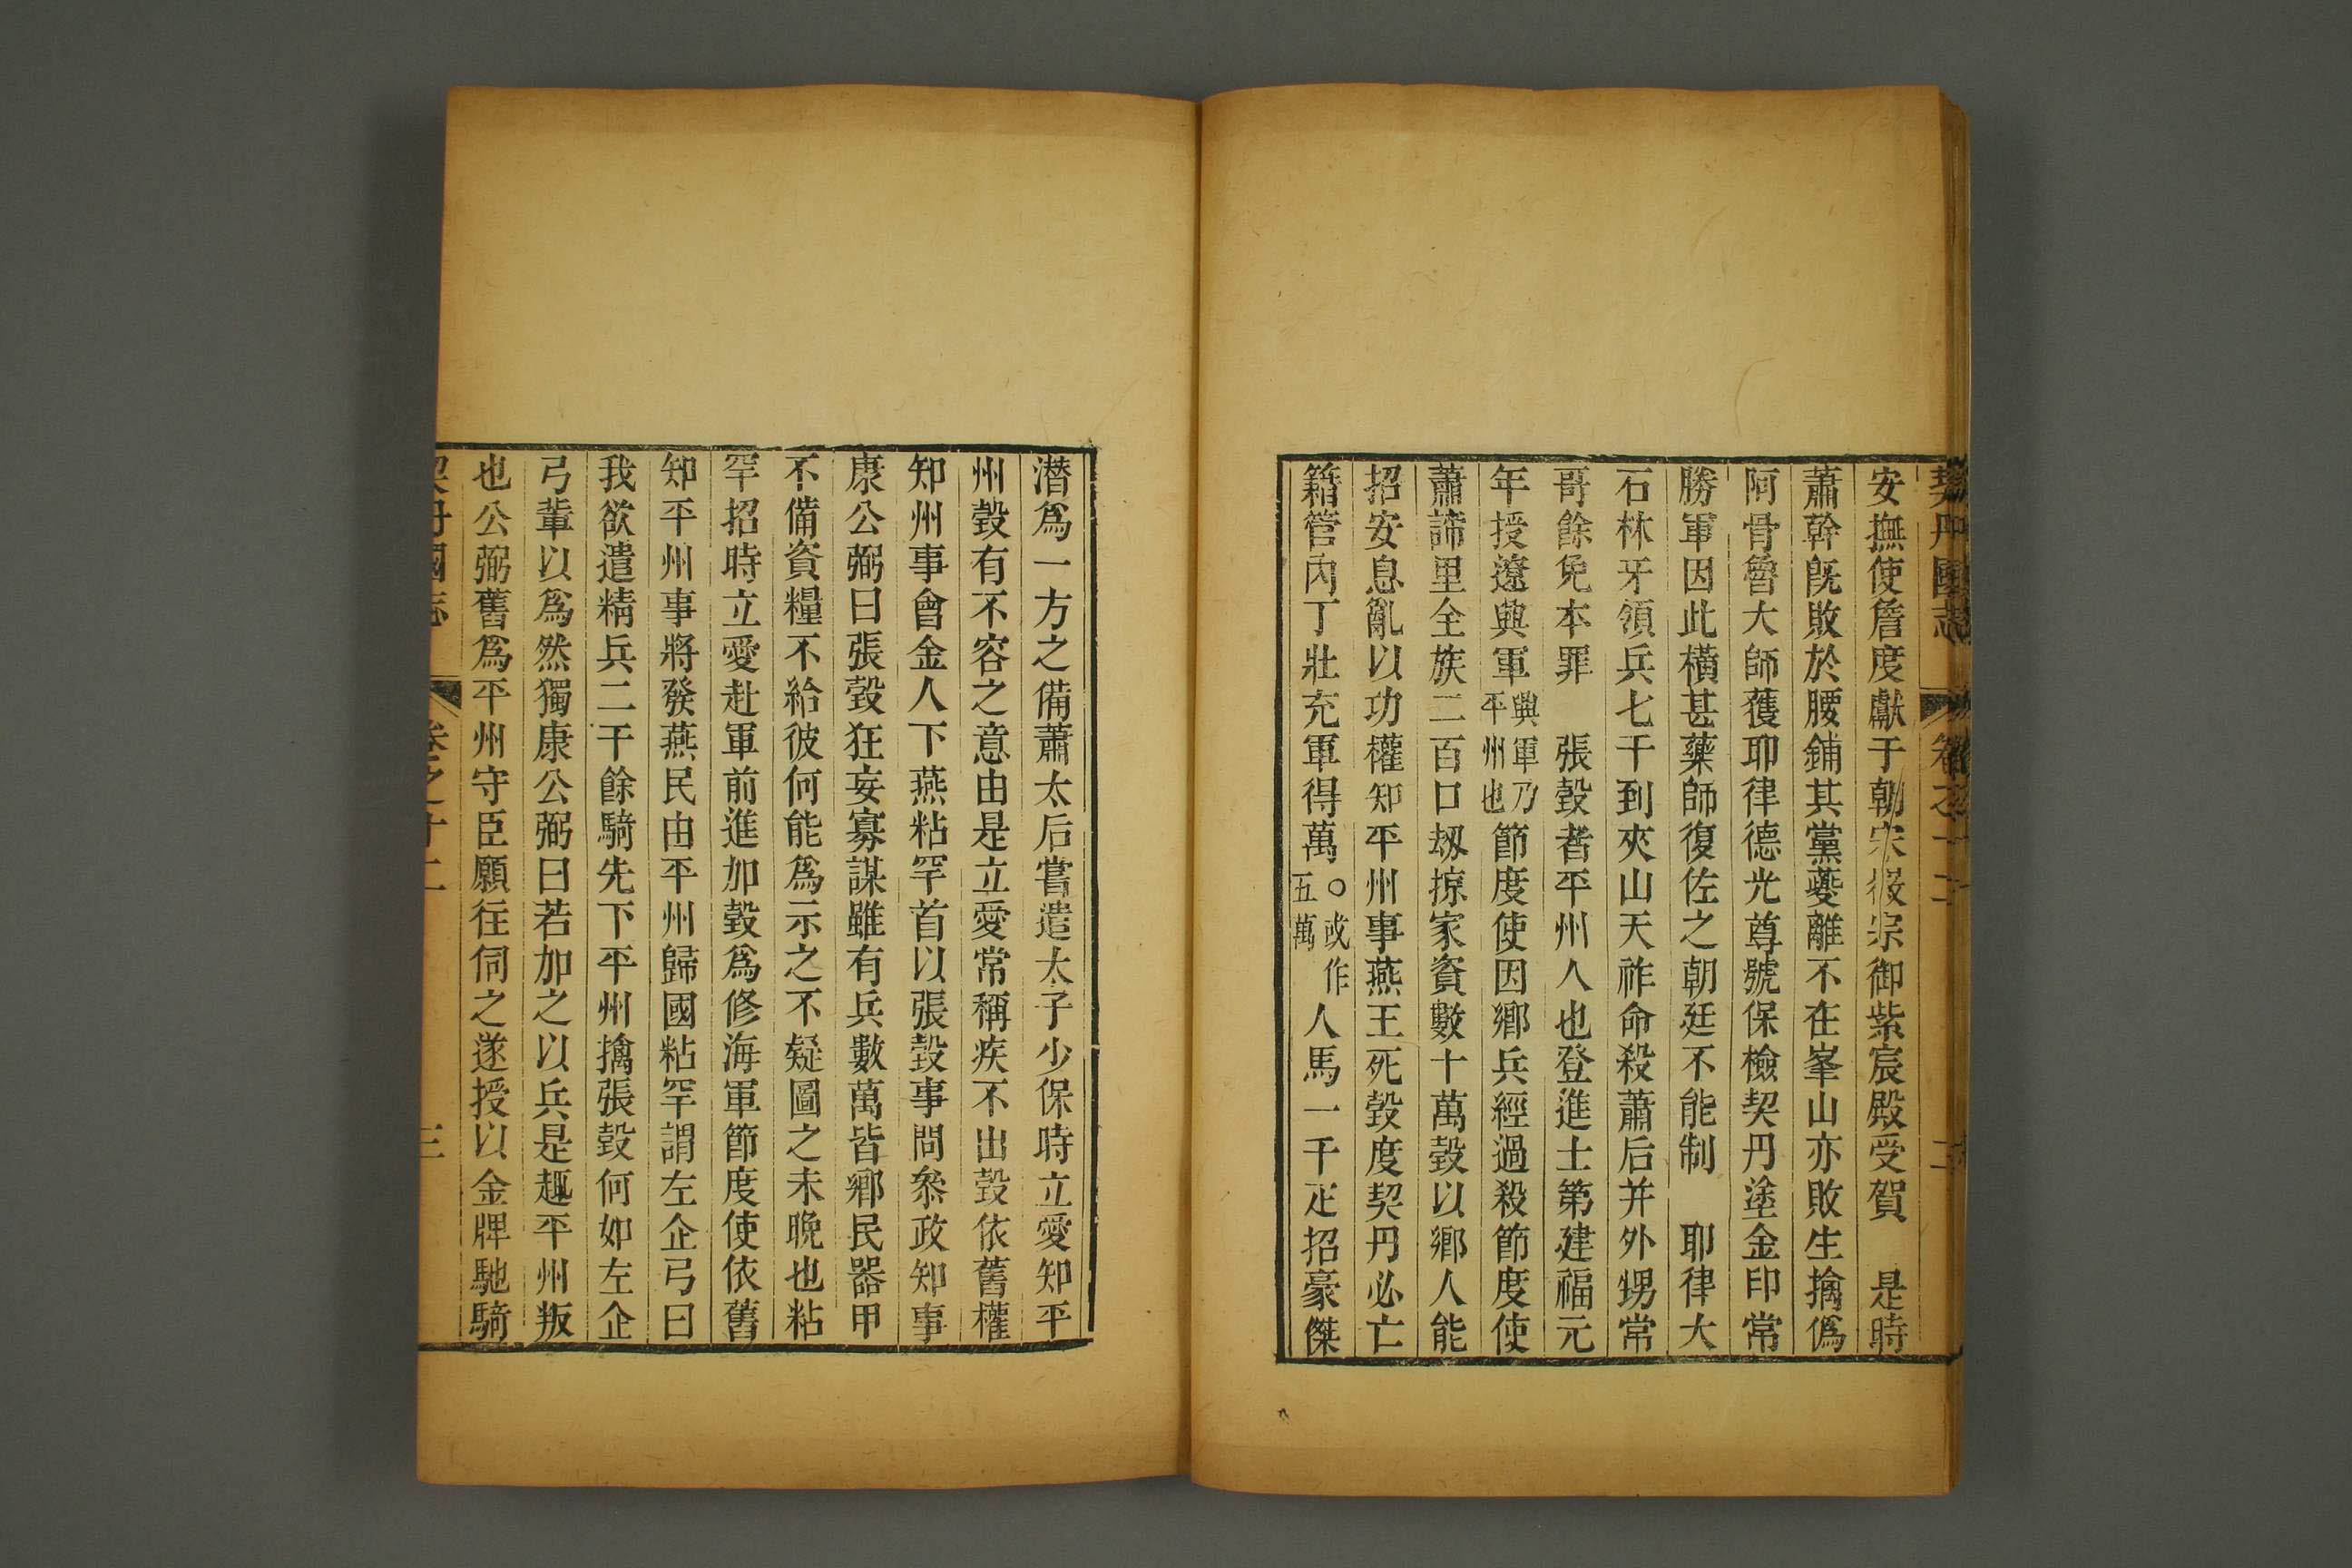 契丹國志 卷之十二 二
安撫使詹度獻于朝宋徽宗御紫宸殿受賀 是時
蕭幹旣敗於腰鋪其黨夔離不在峯山亦敗生擒僞
阿骨魯大師獲耶律德光尊號保檢契丹塗金印常
勝軍因此橫甚藥師復佐之朝廷不能制 耶律大
石林牙領兵七千到夾山天祚命殺蕭后并外甥常
哥餘免本罪 張瑴者平州人也登進士第建福元
年授遼興軍興軍乃平州也節度使因鄉兵經過殺節度使
蕭諦里全族二百口刼掠家資數十萬瑴以鄉人能
招安息亂以功權知平州事燕王死瑴度契丹必亡
籍管內丁壯充軍得萬○或作五萬人馬一千疋招豪傑
潛爲一方之備蕭太后嘗遣太子少保時立愛知平
州瑴有不容之意由是立愛常稱疾不出瑴依舊權
知州事會金人下燕粘罕首以張瑴事問叅政知事
康公弼曰張瑴狂妄寡謀雖有兵數萬皆鄉民器甲
不備資糧不給彼何能爲示之不疑圖之未晚也粘
罕招時立愛赴軍前進加瑴爲修海軍節度使依舊
知平州事將發燕民由平州歸國粘罕謂左企弓曰
我欲遣精兵二千餘騎先下平州擒張瑴何如左企
弓輩以爲然獨康公弼曰若加之以兵是趣平州叛
也公弼舊爲平州守臣願往伺之遂授以金牌馳騎
契丹國志 卷之十二 三